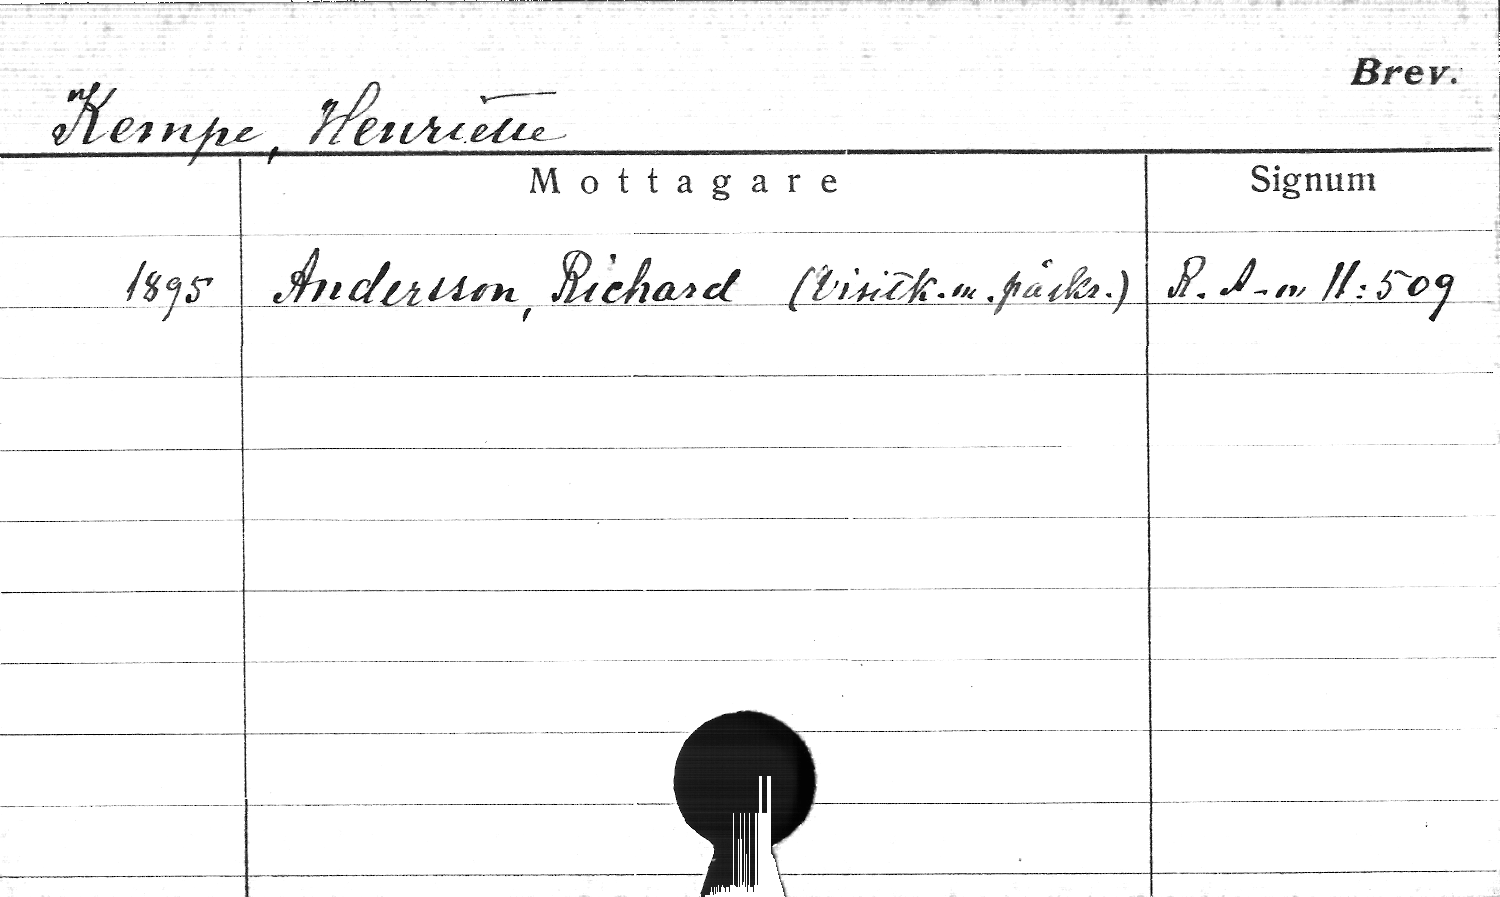 Brev.
Kempe, Henriette
Mottagare Signum
1895 Andersson, Richard (Visitk. m. påskr.) R. A-n 11:509